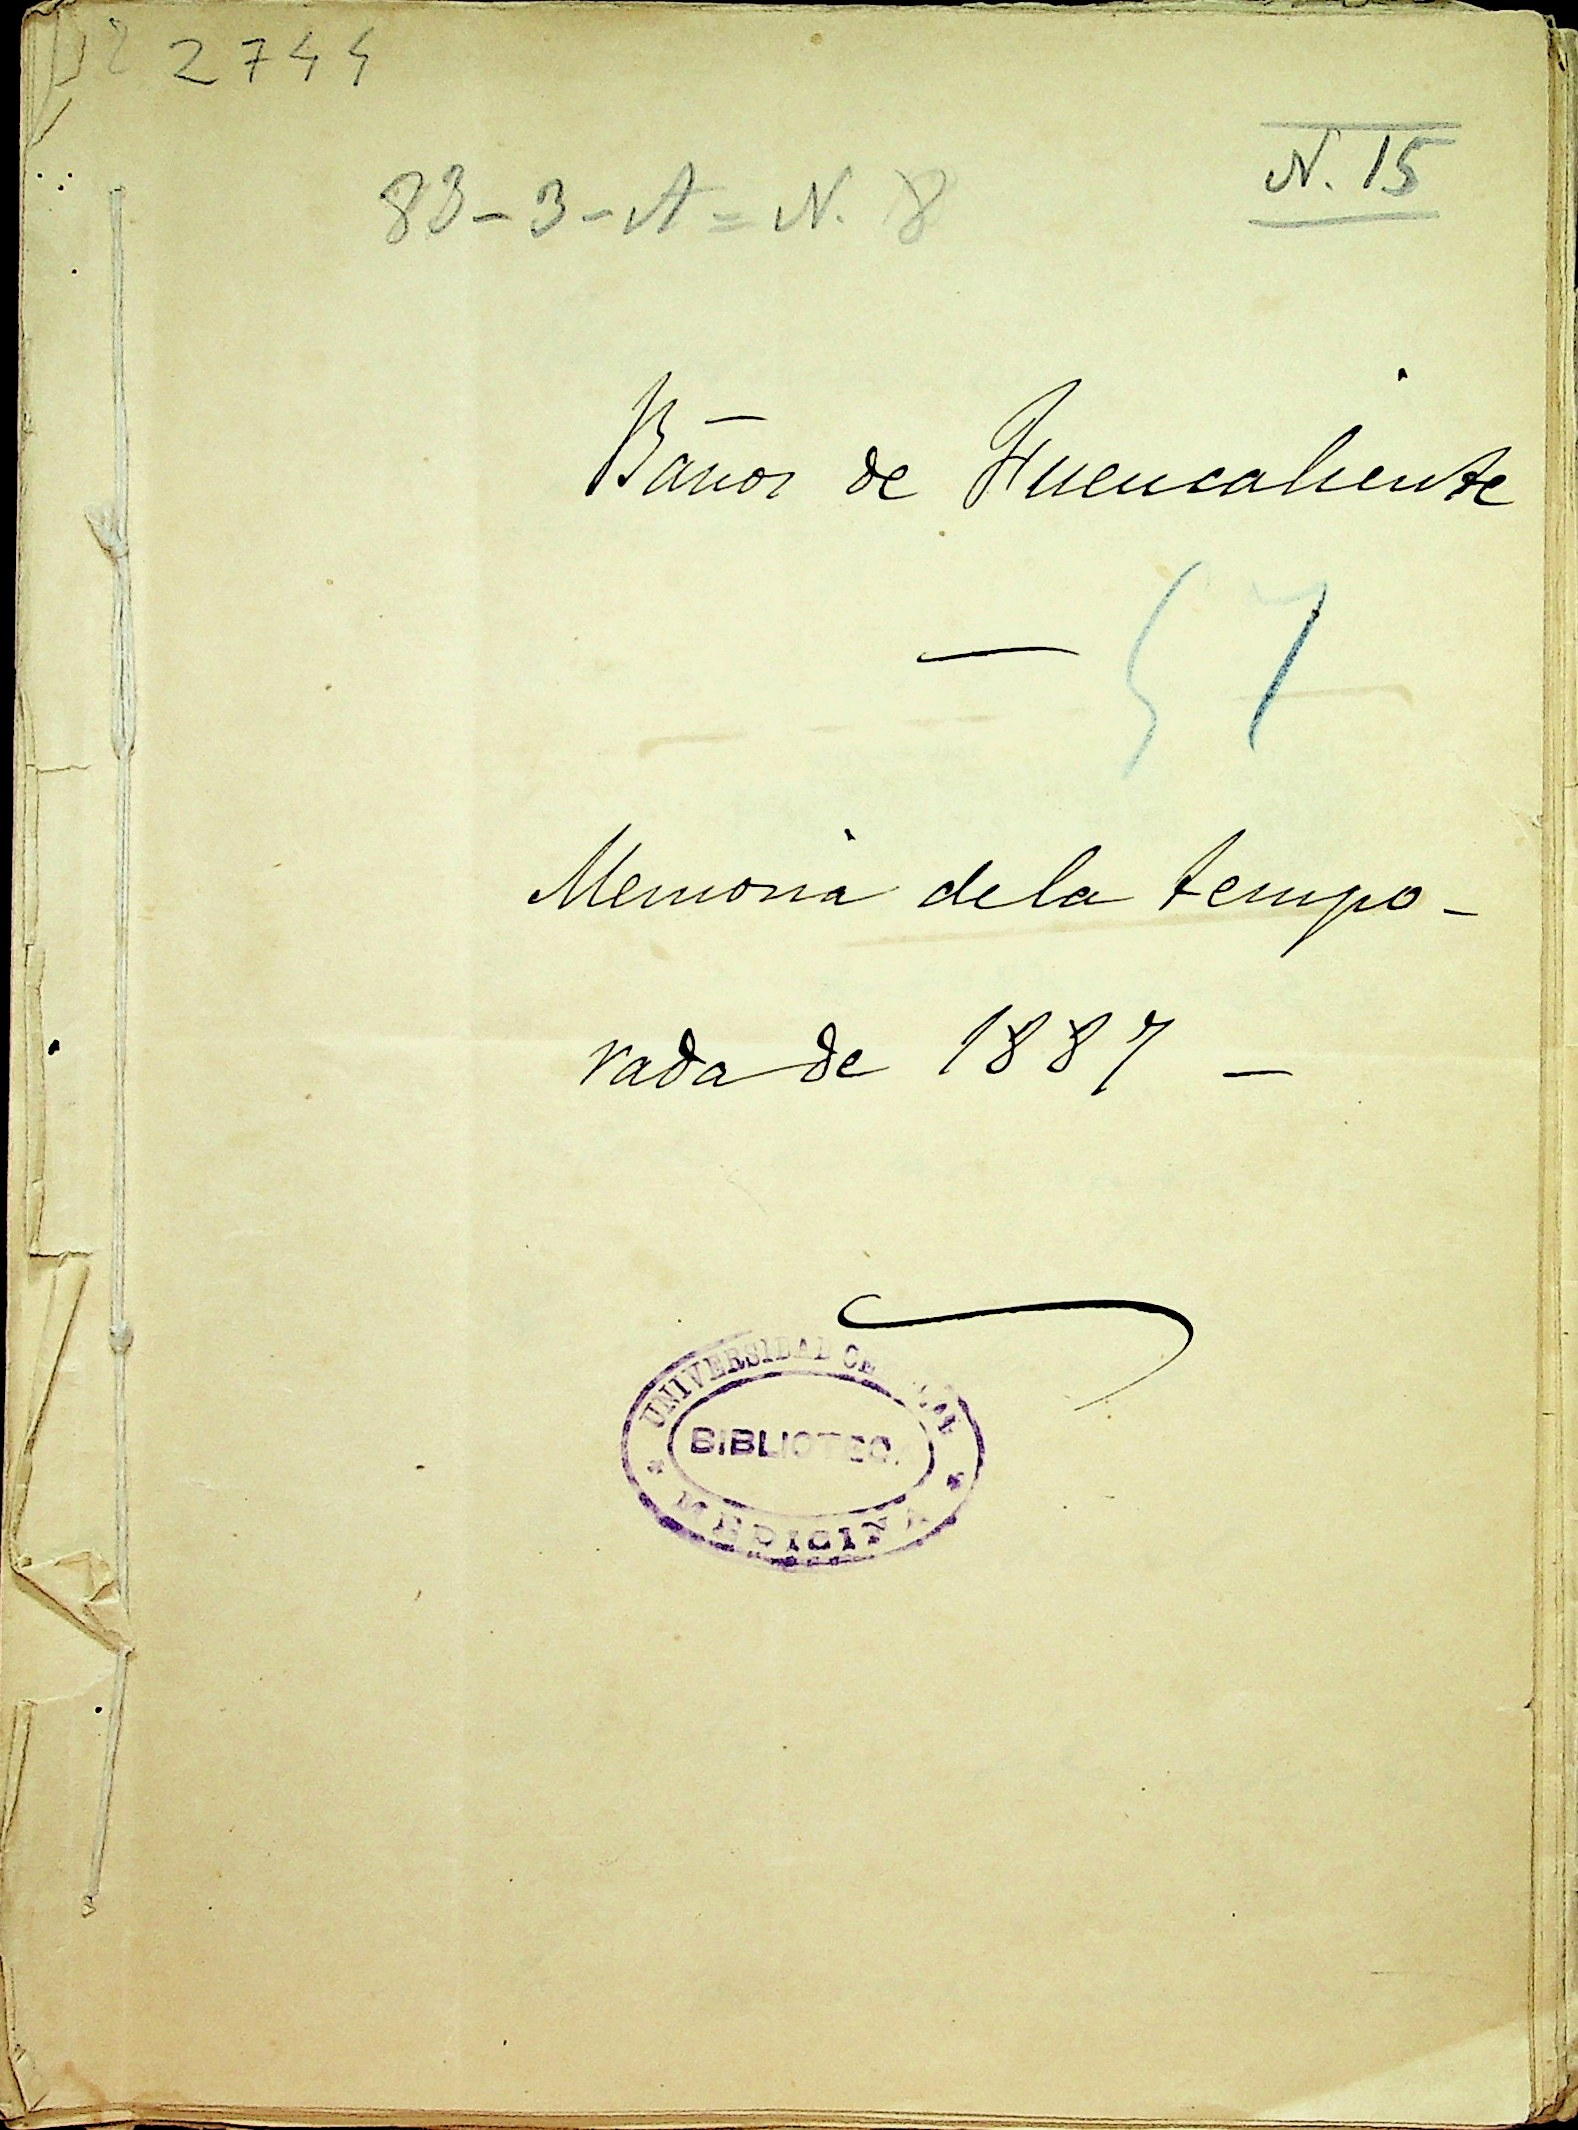 2744
N. 15
83-3-A=N. 8
Baños de Fuencaliente
57
Memoria de la tempo-
rada de 1887-
UNIVERSIDAD CENTRAL
BIBLIOTECA
MEDICINA